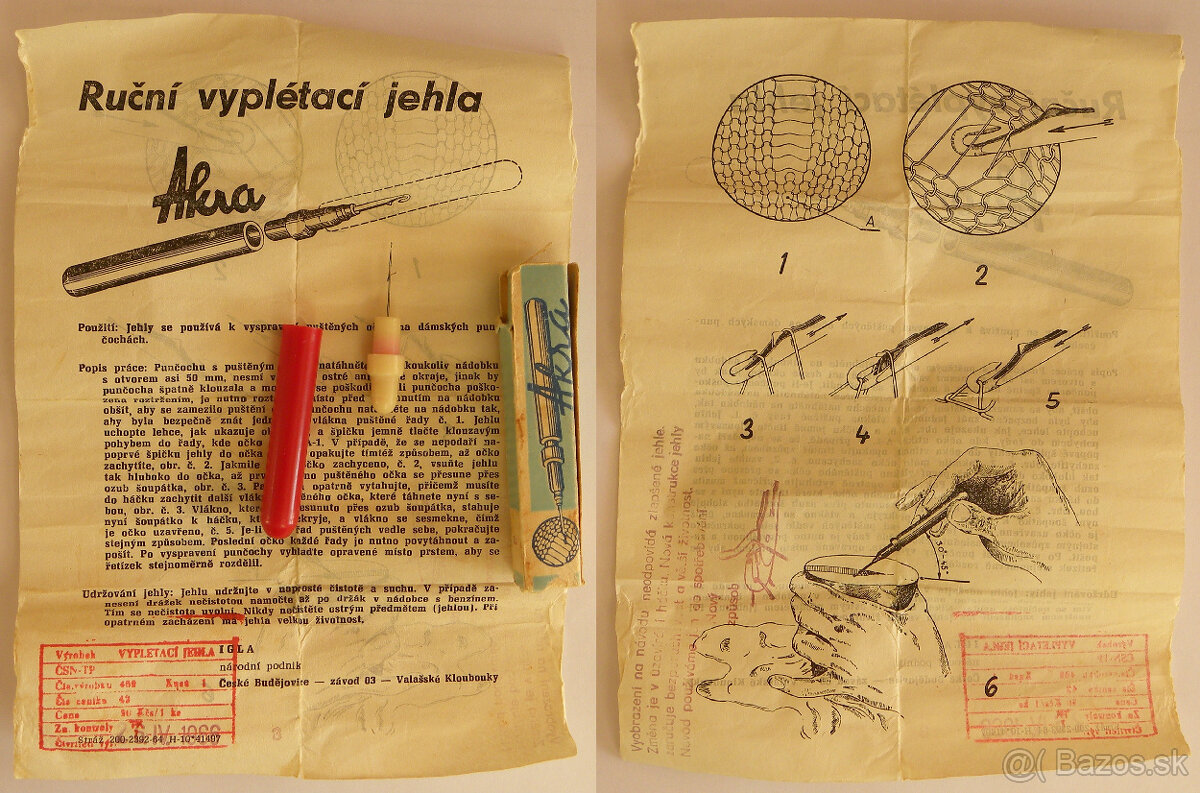 Ruční vyplétací jehla
Akra
Použití: Jehly se používá k vyspra puštěných o na dámských pun
čochách.
Popis práce: Punčochu s puštěným natáhněte koukoliv nádobku
s otvorem asi 50 mm, nesmí v ostré an okraje, jinak by
punčocha špatně klouzala a mo se poškodi li punčocha poško-
zena roztržením, je nutno rozt místo před nutím na nádobku
obšít, aby se zamezilo puštění punčochu nata te na nádobku tak,
aby byla bezpečně znát jedn vlákna puštěné řady č. 1. Jehlu
uchopte lehce, jak ukazuje o a špičku jemně tlačte klouzavým
pohybem do řady, kde očko A-1. V případě, že se nepodaří na-
poprvé špičku jehly do očka opakujte tímtéž způsobem, až očko
zachytíte, obr. č. 2. Jakmile čko zachyceno, č. 2, vsuňte jehlu
tak hluboko do očka, až prv no puštěného očka se přesune přes
ozub šoupátka, obr. č. 3. P opatrně vytahujte, přičemž musíte
do háčku zachytit další vlák čeného očka, které táhnete nyní s se-
bou, obr. č. 3. Vlákno, kter esunuto přes ozub šoupátka, stahuje
nyní šoupátko k háčku, kt kryje, a vlákno se sesmekne, čímž
je očko uzavřeno, č. 5. Je-li řad puštěných vedle sebe, pokračujte
stejným způsobem. Poslední očko každé řady je nutno povytáhnout a za-
pošít. Po vyspravení punčochy vyhlaďte opravené místo prstem, aby se
řetízek stejnoměrně rozdělil.
Udržování jehly: Jehlu udržujte v naprosté čistotě a suchu. V případě za-
nesení drážek nečistotou namočte až po držák v nádobce s benzinem.
Tím se nečistota uvolní. Nikdy nečistěte ostrým předmětem (jehlou). Při
opatrném zacházení má jehla velkou životnost.
IGLA
národní podnik
České Budějovice — závod 03 — Valašské Klobouky
Výrobek VYPLETACÍ JEHLA
ČSN-TP
Čís. výrobku 400 Kusů 1
Čís ceníku 42
Cena Kčs/1 ks
Zn. kontroly TK
Čtvrtletí výr.
Stráž 200-2392-64 H-10*41407
3
Akra
A
1
2
3
4
5
30°-45°
6
Vyobrazení na návodu neodpovídá zasílané jehle.
Změna je v uzavírání háčku. Nová konstrukce jehly
zaručuje bezpečnost a větší životnost.
Návod používáme do spotřebování
Nový
způsob
@( Bazos.sk